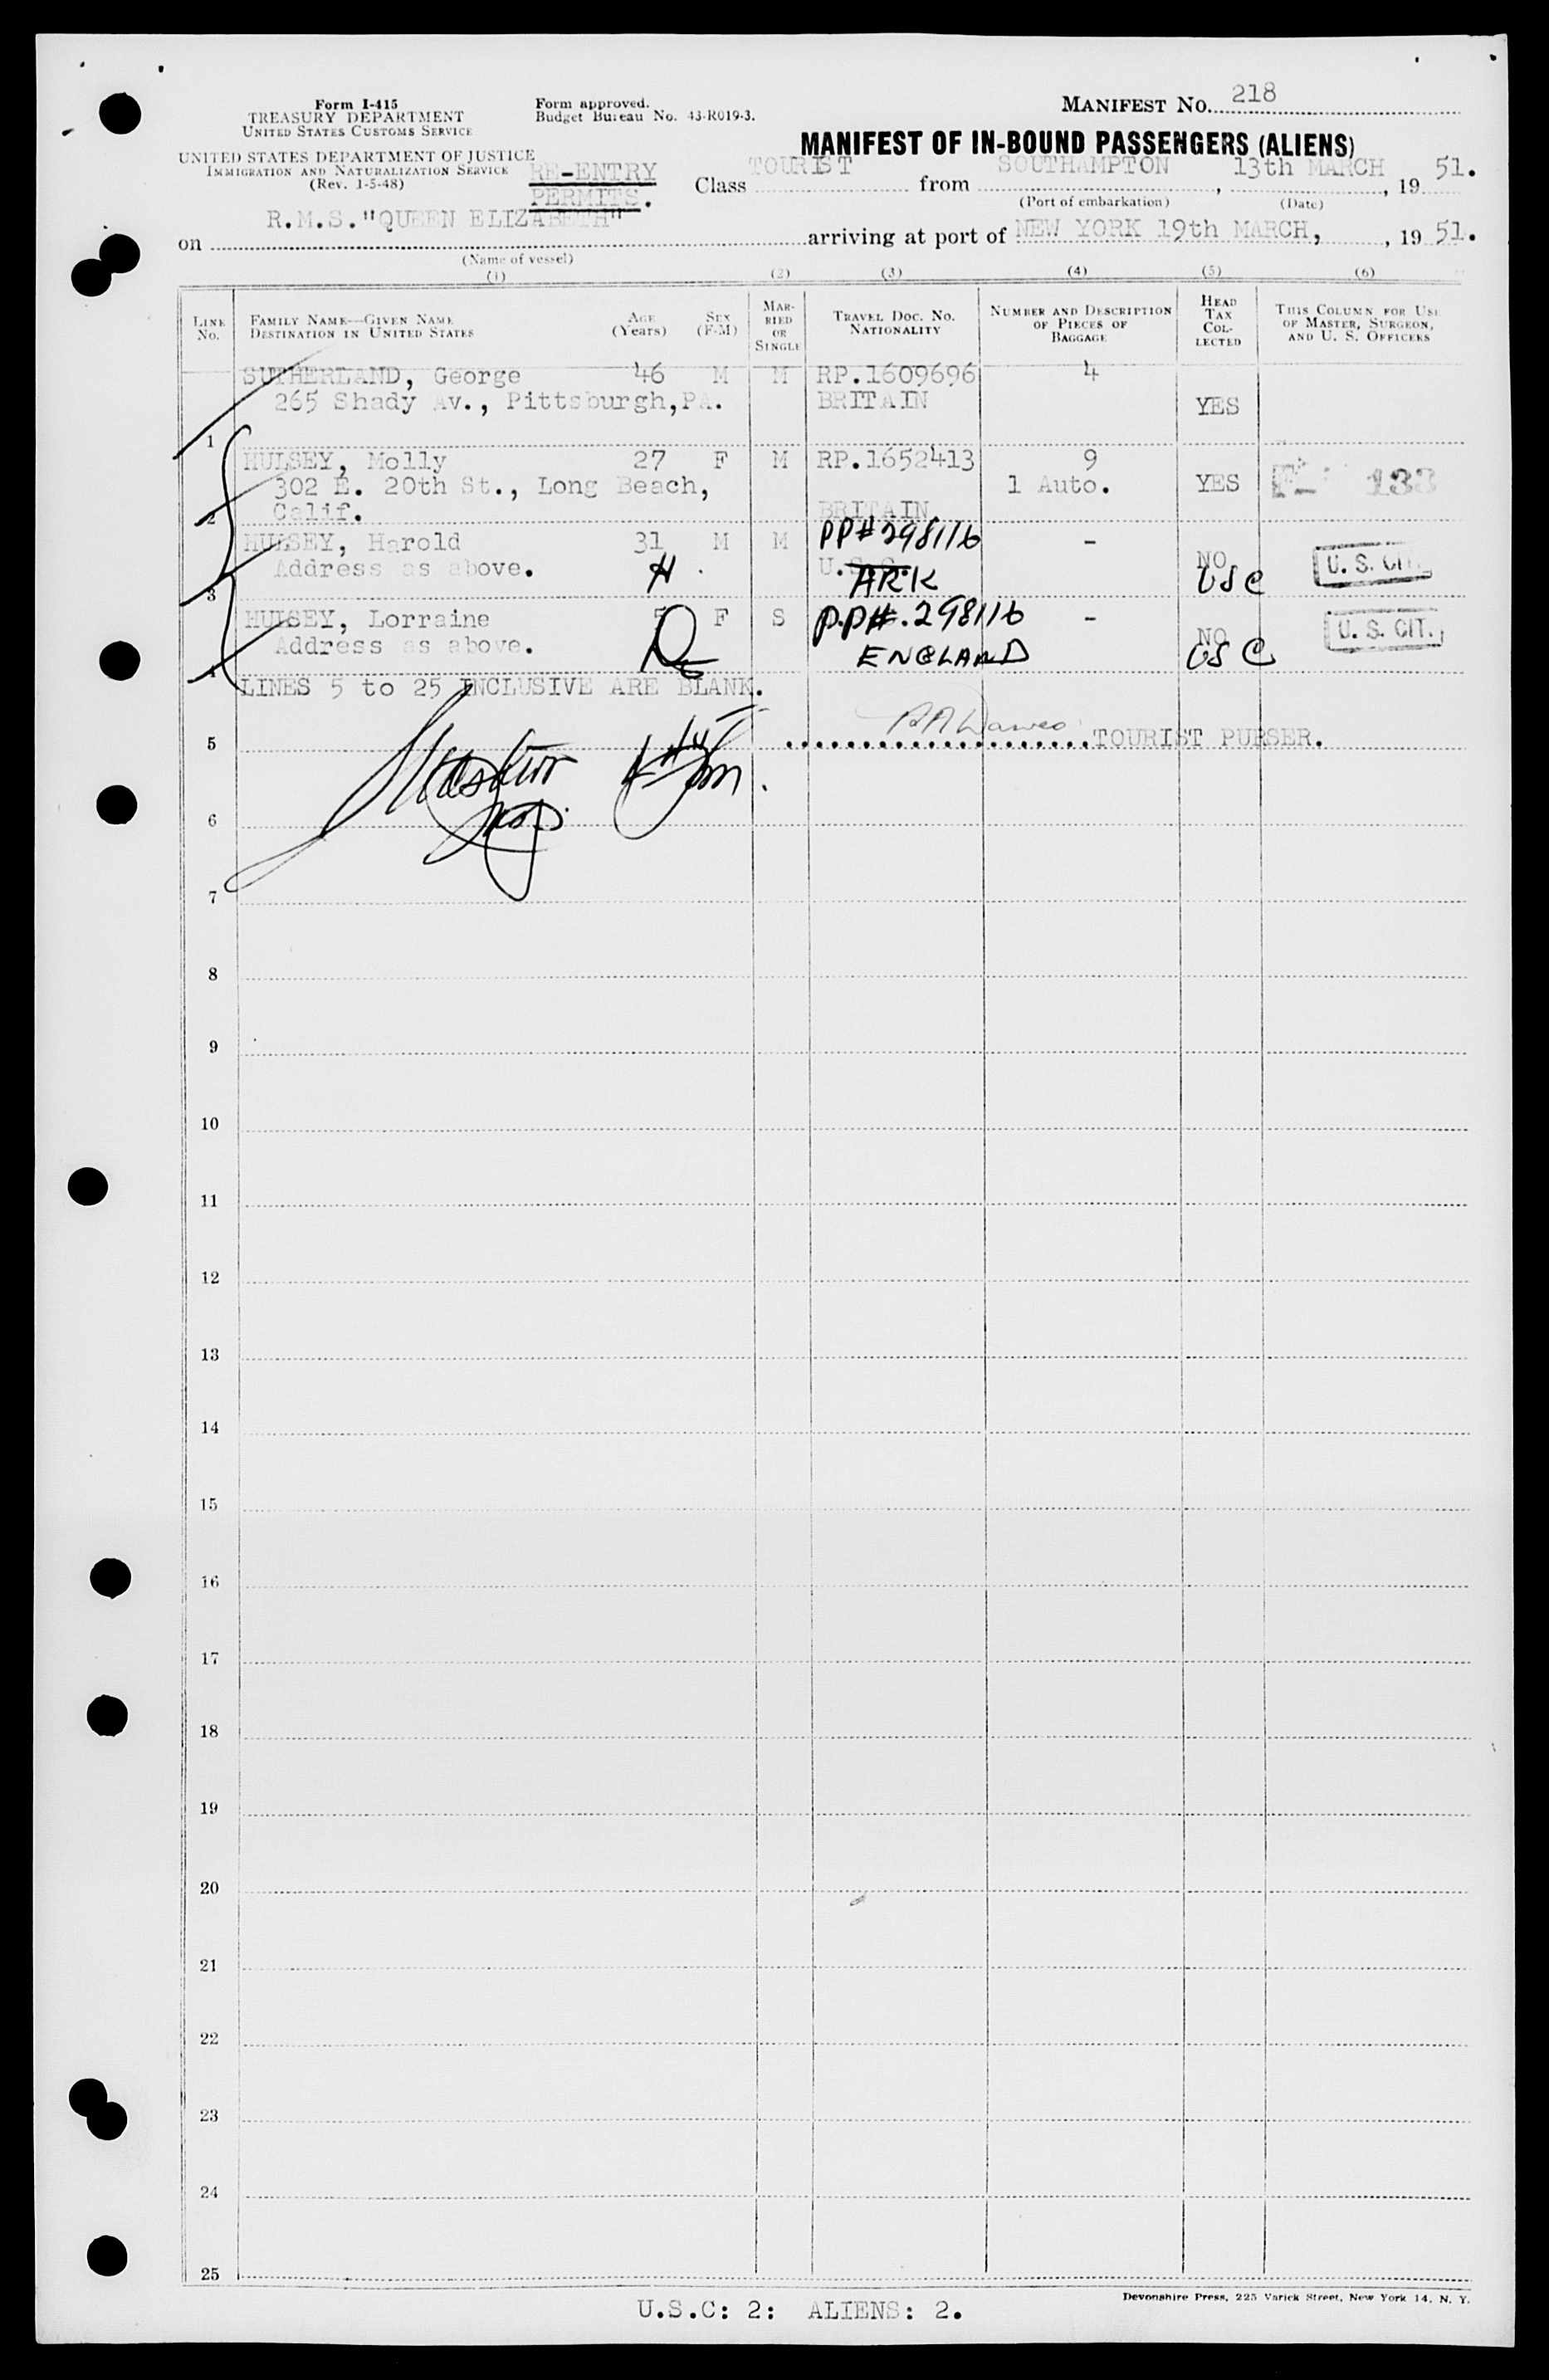 Form I-415
TREASURY DEPARTMENT
UNITED STATES CUSTOMS SERVICE
UNITED STATES DEPARTMENT OF JUSTICE
IMMIGRATION AND NATURALIZATION SERVICE
(Rev. 1-5-48)
Form approved.
Budget Bureau No. 43-R019-3.
RE-ENTRY
PERMITS.
MANIFEST NO. 218
MANIFEST OF IN-BOUND PASSENGERS (ALIENS)
Class TOURIST from SOUTHAMPTON, 13th MARCH, 19 51.
(Port of embarkation) (Date)
on R.M.S."QUEEN ELIZABETH" arriving at port of NEW YORK 19th MARCH, , 19 51.
(Name of vessel)
(1) (2) (3) (4) (5) (6)
LINE NO. FAMILY NAME—GIVEN NAME DESTINATION IN UNITED STATES AGE (Years) SEX (F-M) MARRIED OR SINGLE TRAVEL DOC. NO. NATIONALITY NUMBER AND DESCRIPTION OF PIECES OF BAGGAGE HEAD TAX COLLECTED THIS COLUMN FOR USE OF MASTER, SURGEON, AND U. S. OFFICERS
SUTHERLAND, George 46 M M RP.1609696 4
265 Shady Av., Pittsburgh,PA. BRITAIN YES
1
HULSEY, Molly 27 F M RP.1652413 9
302 E. 20th St., Long Beach, 1 Auto. YES 133
2 Calif. BRITAIN
HULSEY, Harold 31 M M PP#298116 - NO U. S. CIT.
Address as above. H ARK USC
3
HULSEY, Lorraine 5 F S P.P#.298116 - NO U. S. CIT.
Address as above. ENGLAND USC
4
LINES 5 to 25 INCLUSIVE ARE BLANK.
5 TOURIST PURSER.
6
7
8
9
10
11
12
13
14
15
16
17
18
19
20
21
22
23
24
25
Devonshire Press, 225 Varick Street, New York 14, N. Y.
U.S.C: 2: ALIENS: 2.